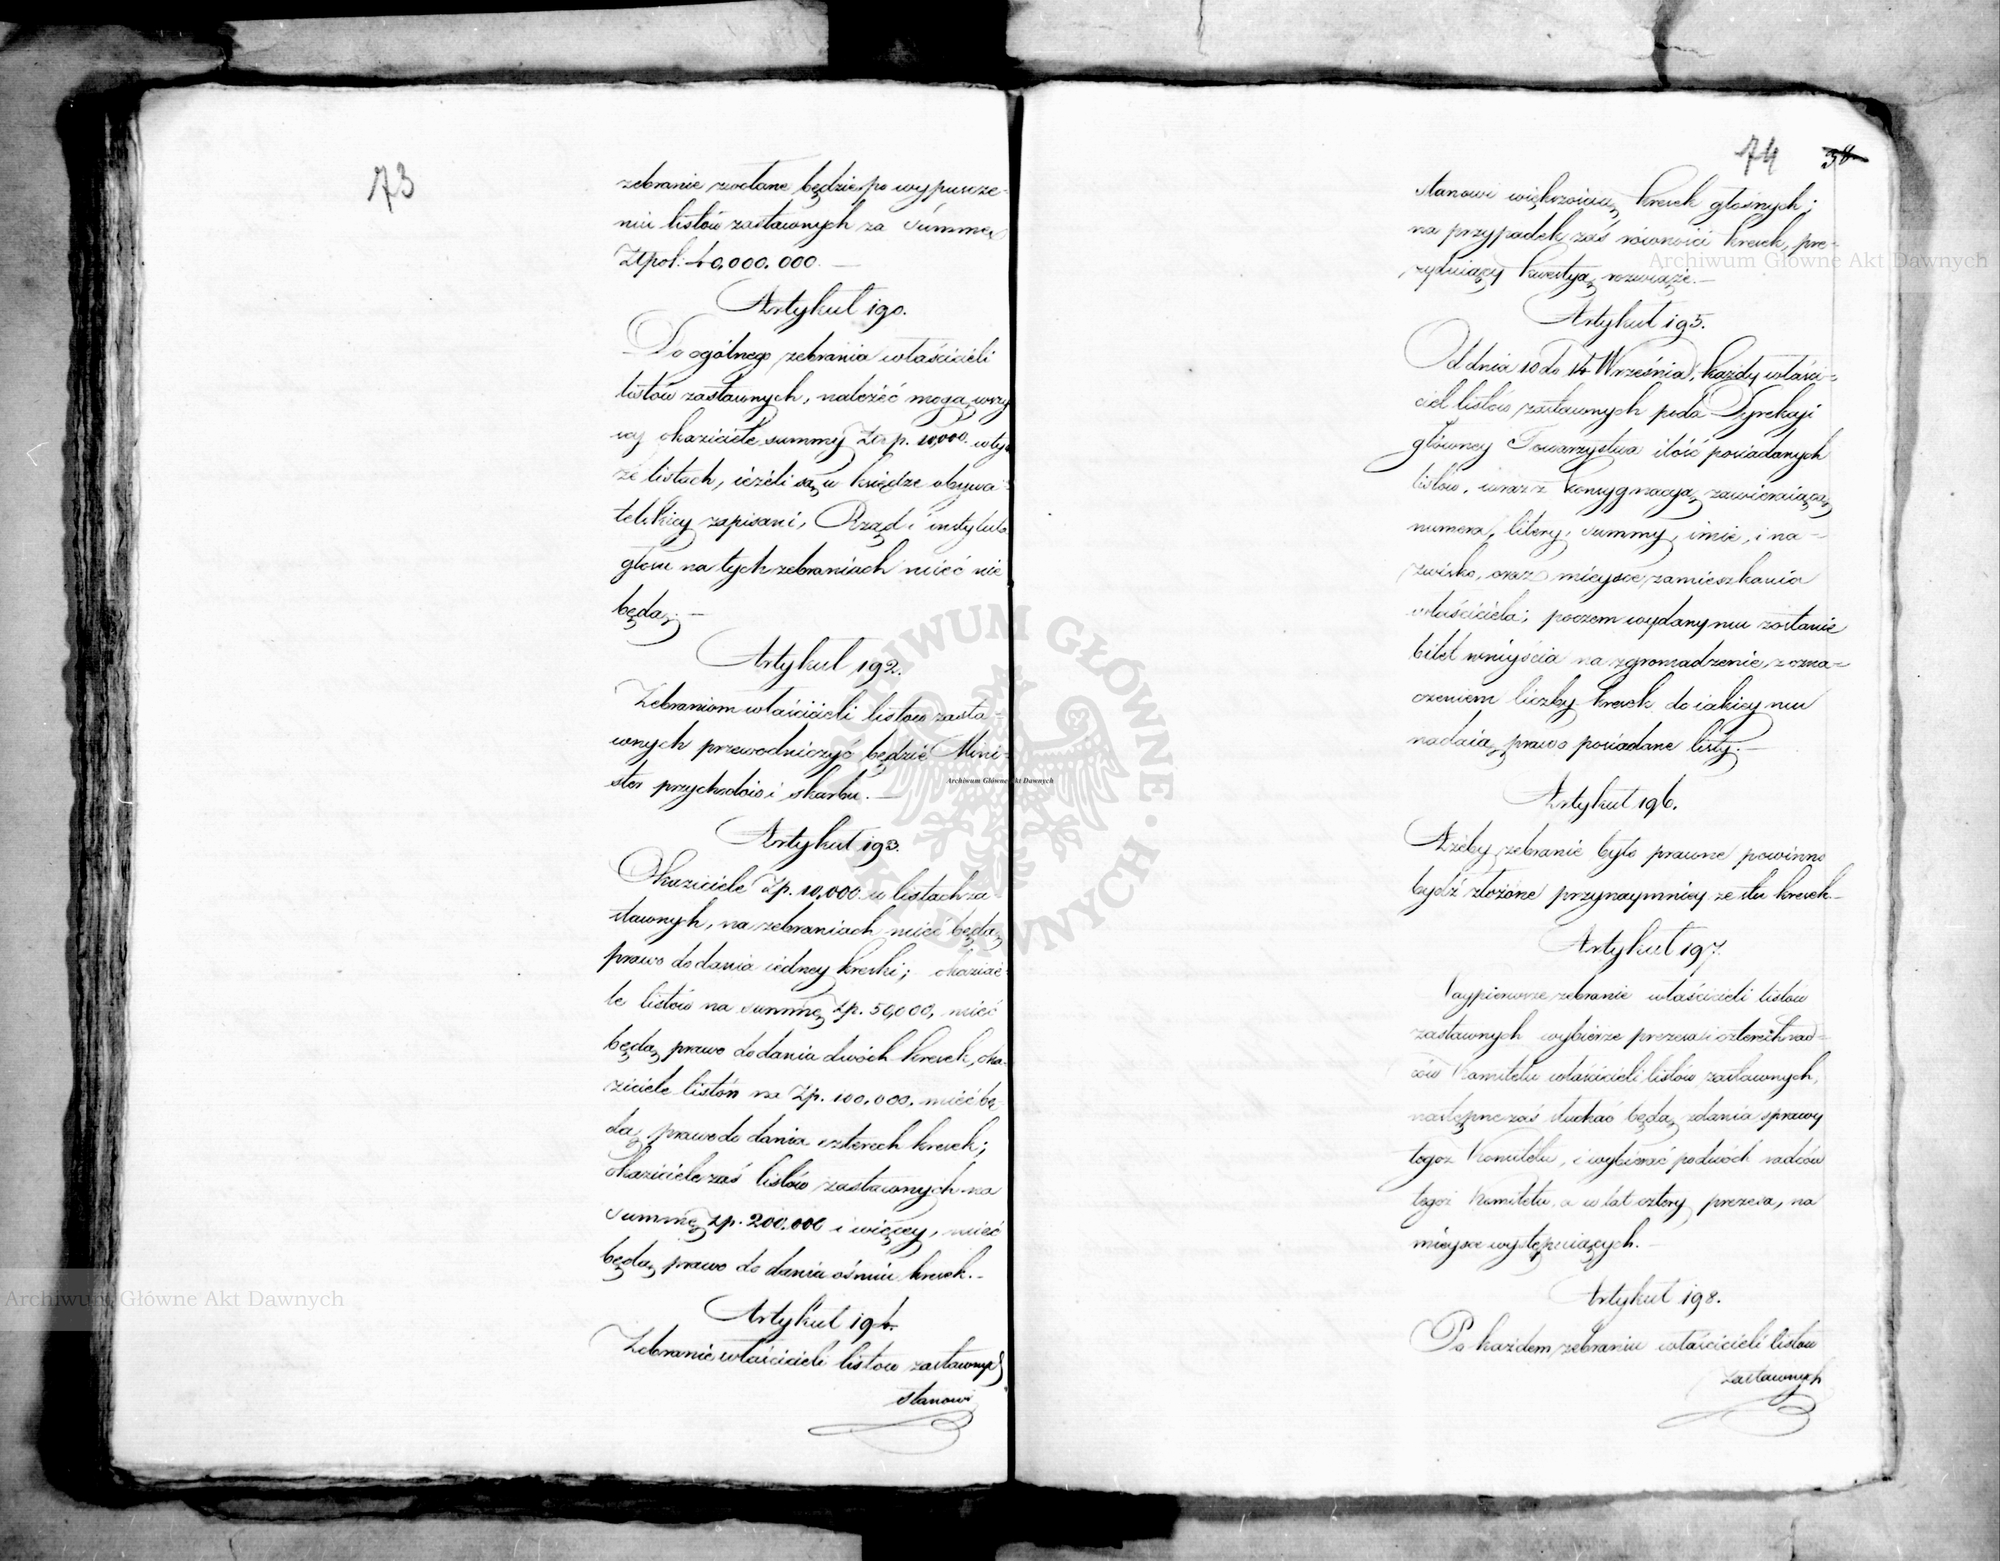 73
zebranie zwołane będzie po wypuszcze-
niu listów zastawnych za Summę
Złpol: 40,000,000. —
Artykuł 190.
Do ogólnego zebrania właścicieli
listów zastawnych, należéć mogą wszy
scy okaziciele summy Złp. 10,000. w tych
że listach, ieżeli są w księdze obywa-
telskiey zapisani, Rząd i instytuta
głosu na tych zebraniach mieć nie
będą. —
Artykuł 192.
Zebraniom właścicieli listów zasta-
wnych przewodniczyć będzie Mini-
ster przychodów i skarbu. —
Artykuł 193.
Okaziciele Zp. 10,000 w listach za-
stawnych, na zebraniach mieć będą
prawo do dania iedney kreski; okazicie-
le listów na summę Zp. 50,000, mieć
będą prawo do dania dwóch kresek, oka-
ziciele listów na Zp. 100,000, mieć bę-
dą prawo do dania czterech kresek;
okaziciele zaś listów zastawnych na
summę Zp. 200.000 i więcey, mieć
będą prawo do dania ośmiu kresek. -
Artykuł 194.
Zebranie właścicieli listów zastawnych
stanowi
74 38
stanowi większością kresek głośnych;
na przypadek zaś równości kresek, pre-
zyduiący kwestyą rozwiąże. —
Artykuł 195.
Od dnia 10 do 14 Września, każdy właści-
ciel listów zastawnych poda Dyrekcji
główney Towarzystwa ilość posiadanych
listów, wraz z konsygnacyą zawieraiącą
numera, litery, summy, imie, i na-
zwisko, oraz mieysce zamieszkania
właściciela; poczem wydany mu zostanie
bilet wniyścia na zgromadzenie, z ozna-
czeniem liczby kresek do iakiey mu
nadaią prawo posiadane listy. —
Artykuł 196.
Ażeby zebranie było prawne powinno
bydź złożone przynaymniey ze stu kresek. -
Artykuł 197.
Naypierwsze zebranie właścicieli listów
zastawnych wybierze prezesa i czterech rad-
ców Komitetu właścicieli listów zastawnych,
następne zaś słuchać będą zdania sprawy
tegoż Komitetu, i wybierać po dwóch radców
tegoż Komitetu, a w lat cztery prezesa, na
mieysce występuiących. —
Artykuł 198.
Po każdem zebraniu właścicieli listów
zastawnych
Archiwum Główne Akt Dawnych
Archiwum Główne Akt Dawnych
Archiwum Główne Akt Dawnych
ARCHIWUM GŁÓWNE AKT DAWNYCH